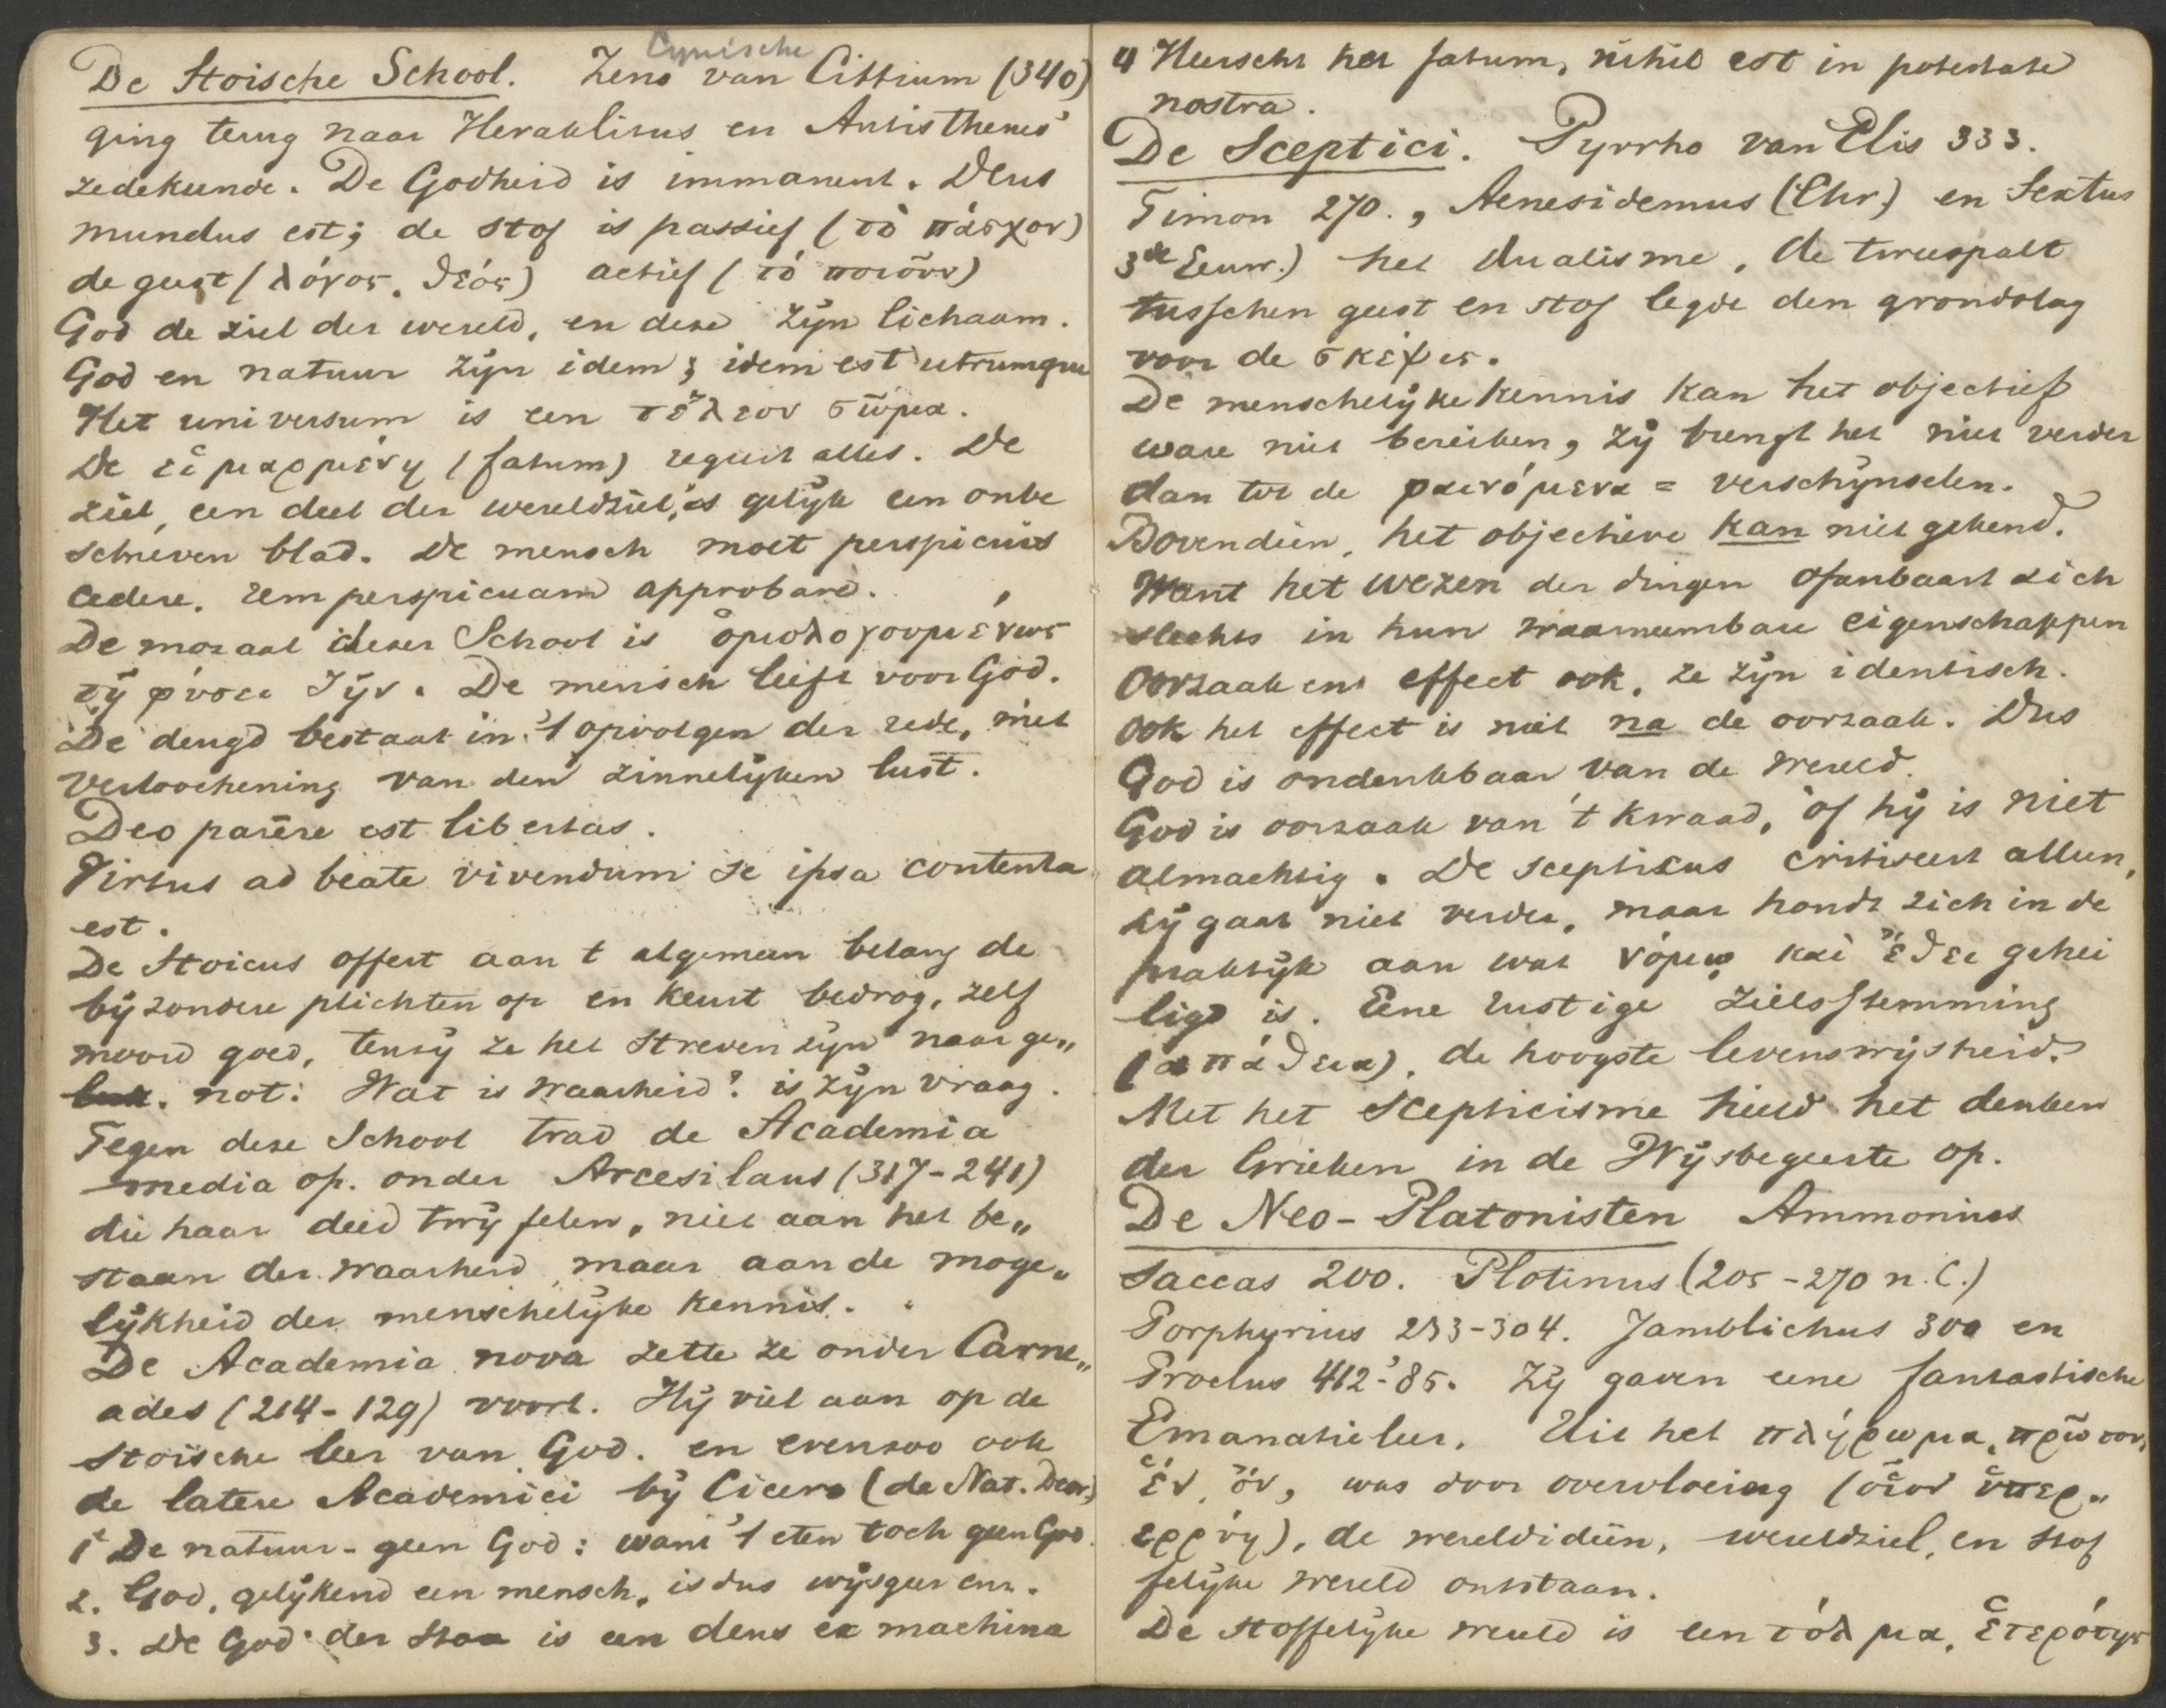 Cynische
De Stoische School. Zeno van Cittium (340)
ging terug naar Heraklitus en Antisthenes'
zedekunde. De Godheid is immanent. Deus
mundus est; de stof is passief (τὸ πάσχον)
de geest (λόγος, θεός) actief (τό ποιοῦν)
God de ziel der wereld, en deze zijn lichaam.
God en natuur zijn idem; idem est utrumque
Het universum is een τέλεον σῶμα.
De εἱμαρμένη (fatum) regeert alles. De
ziel, een deel der wereldziel, is gelijk een onbe
schreven blad. De mensch moet perspicuis
cedere, rem perspicuam approbare.
De moraal dezer School is ὁμολογουμένως
τῇ φύσει ζῆν. De mensch leeft voor God.
De deugd bestaat in 't opvolgen der rede, met
verloochening van den zinnelijken lust.
Deo parēre est libertas.
Virtus ad beate vivendum se ipsa contenta
est.
De Stoicus offert aan t algemeen belang de
bijzondere plichten op en keurt bedrog, zelf
moord goed, tenzij ze het streven zijn naar ge„
not: Wat is waarheid? is zijn vraag.
Tegen deze School trad de Academia
media op. onder Arcesilaus (317-241)
die haar deed twijfelen, niet aan het be„
staan der waarheid, maar aan de moge„
lijkheid der menschelijke kennis.
De Academia nova zette ze onder Carne„
ades (214-129) voort. Hij viel aan op de
stoische leer van God. en evenzoo ook
de latere Academici bij Cicero (de Nat. Deor.)
1e De natuur - geen God: want 't eten toch geen God.
2. God, gelijkend een mensch, is dus wijsgeer enz.
3. De God der Stoa is een deus ex machina
4 Heerscht het fatum, nihil est in potestate
nostra.
De Sceptici. Pyrrho van Elis 333.
Timon 270., Aenesidemus (Chr.) en Sextus
3de Eeuw.) het dualisme, de tweespalt
tusschen geest en stof legde den grondslag
voor de σκέψις.
De menschelijke kennis kan het objectief
ware niet bereiken, zij brengt het niet verder
dan tot de φαινόμενα = verschijnselen.
Bovendien, het objectieve kan niet gekend.
Want het wezen der dingen openbaart zich
slechts in hun waarneembare eigenschappen
Oorzaak en effect ook, ze zijn identisch.
Ook het effect is niet na de oorzaak. Dus
God is ondenkbaar van de wereld.
God is oorzaak van 't kwaad, òf hij is niet
almachtig. De scepticus critiseert alleen,
hij gaat niet verder, maar houdt zich in de
praktijk aan wat νόμῳ καὶ ἔθει gehei
ligd is. Eene rustige zielsstemming
(απάθεια), de hoogste levenswijsheid.
Met het scepticisme hield het denken
der Grieken in de Wijsbegeerte op.
De Neo-Platonisten Ammonius
Saccas 200. Plotinus (205-270 n.C.)
Porphyrius 233-304. Jamblichus 300 en
Proclus 412-'85. Zij gaven eene fantastische
Emanatieleer. Uit het πλήρωμα, πρῶτον,
ἕν, ὄν, was door overvloeiing (οἷον ὑπερ„
ερρύη), de wereldideën, wereldziel, en stof
felijke wereld ontstaan.
De stoffelijke wereld is een τόλμα, ἑτερότης